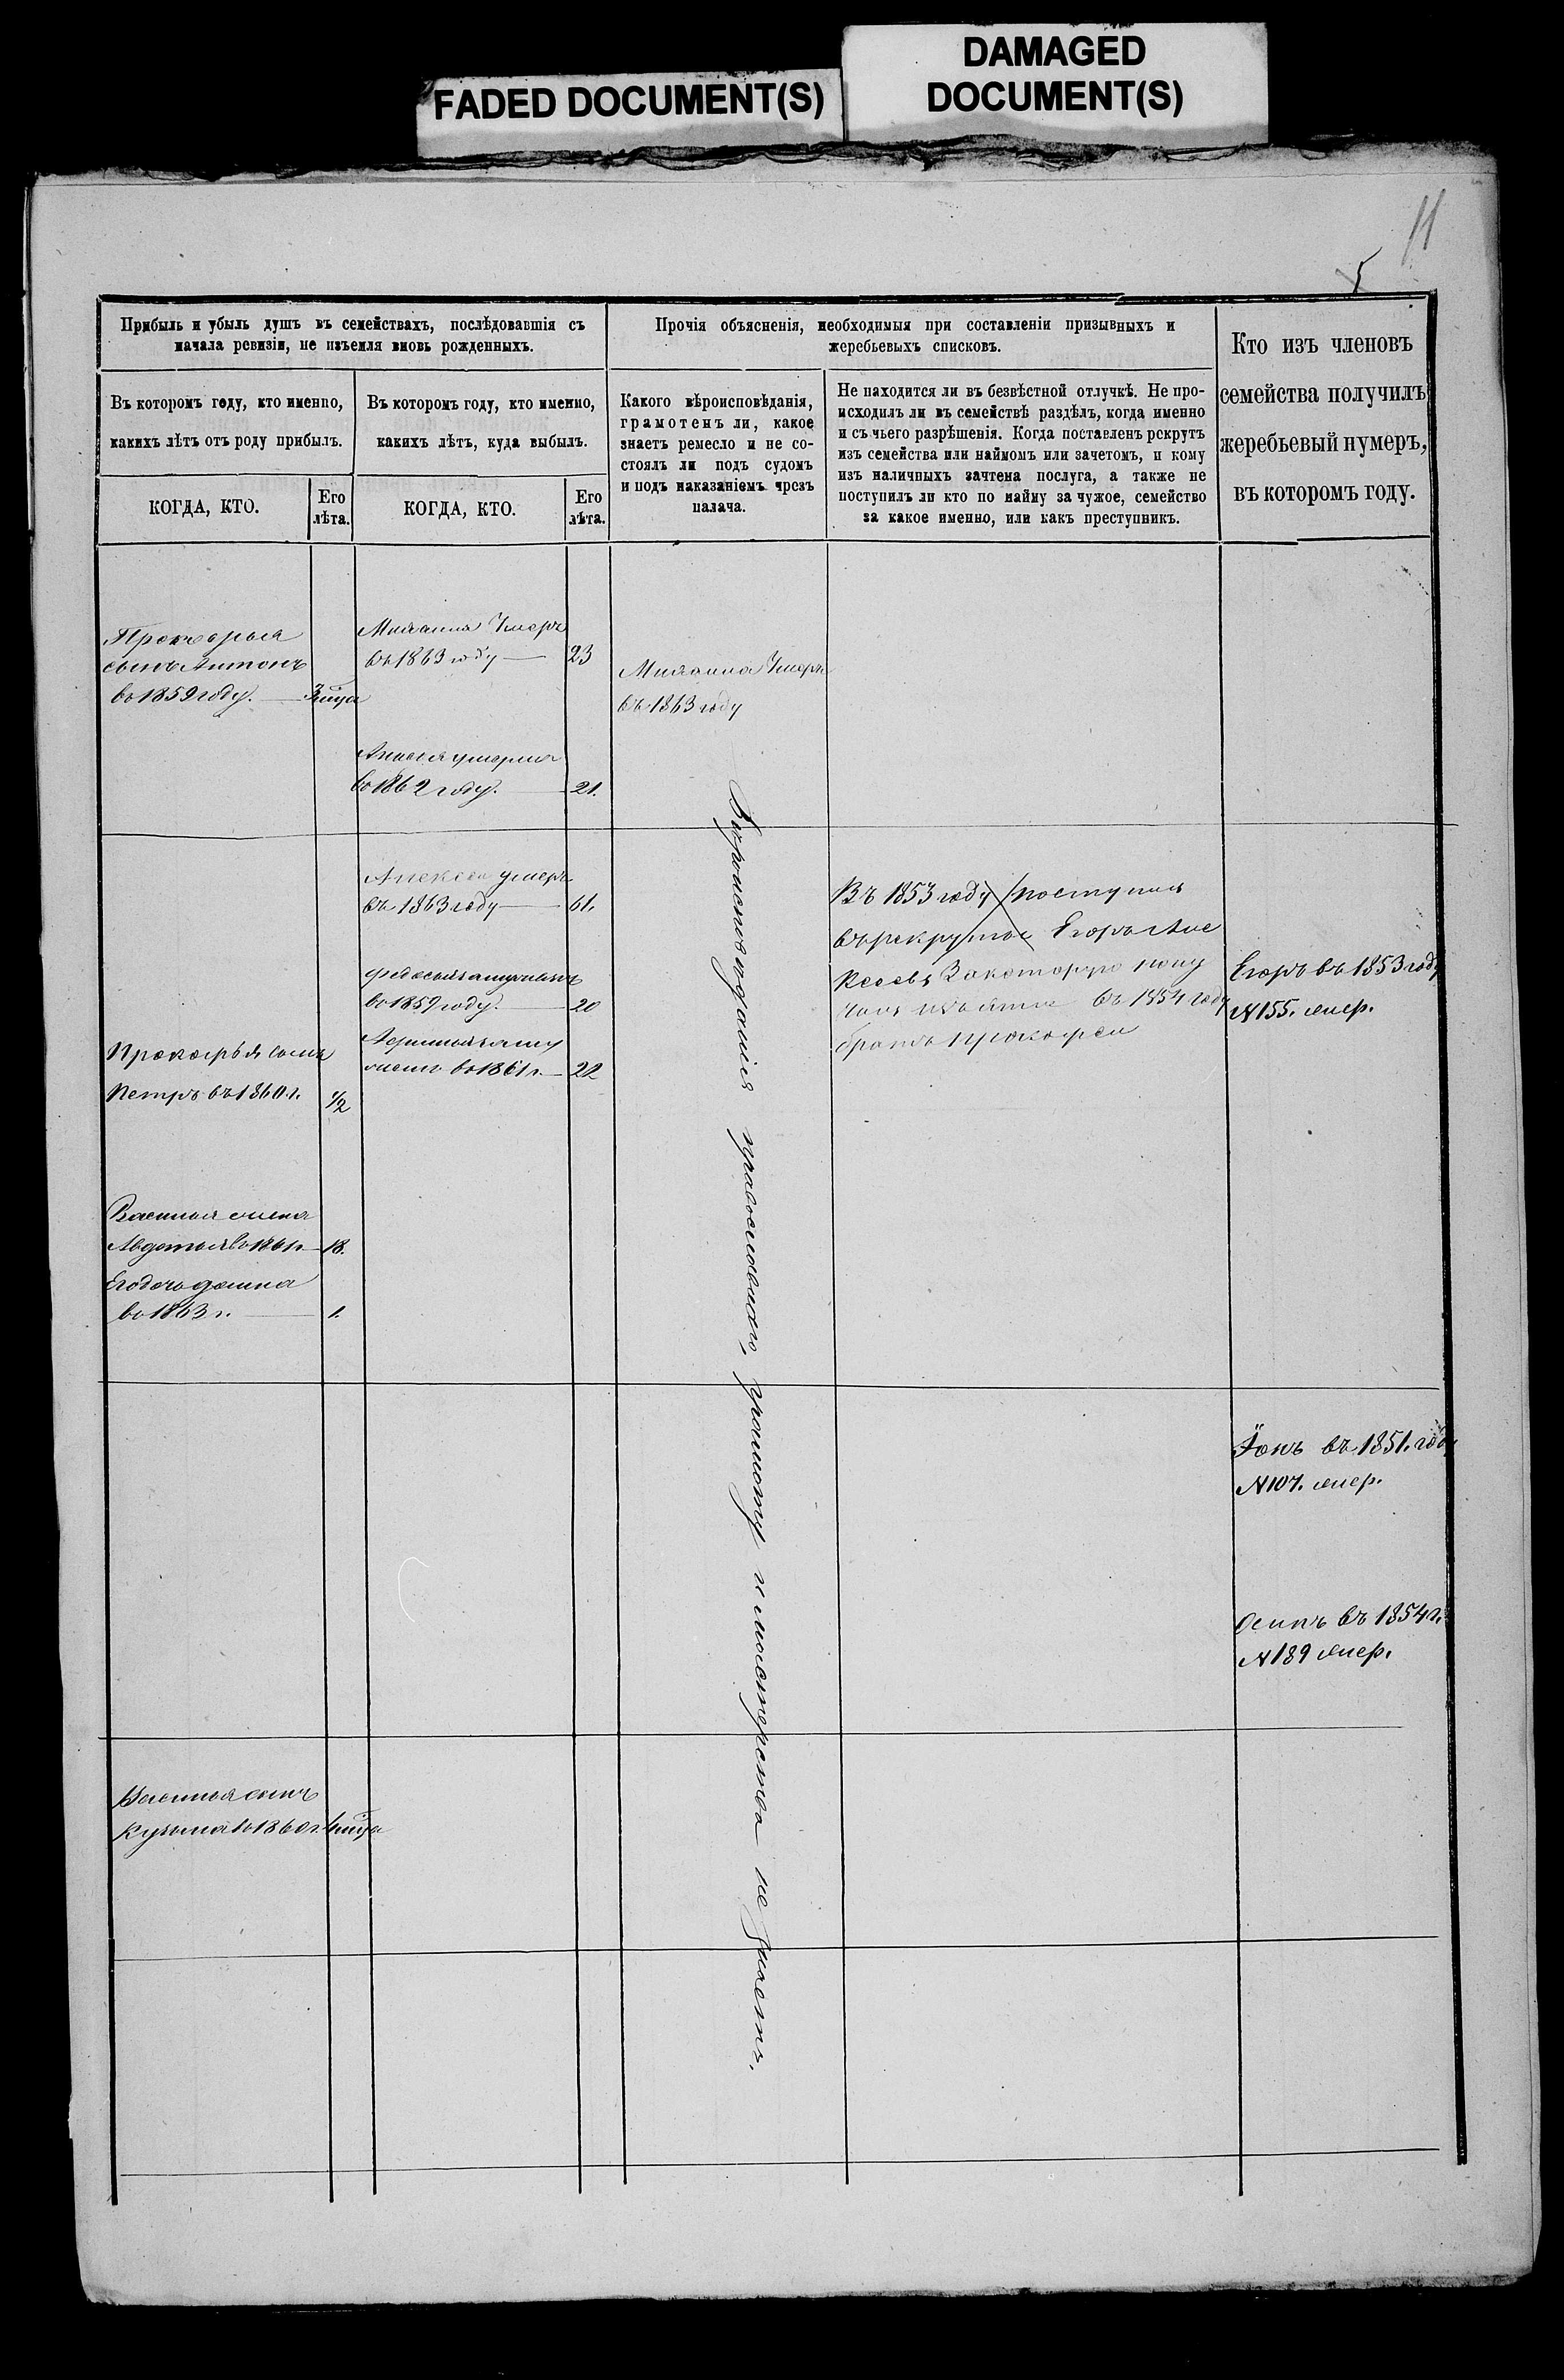 FADED DOCUMENT(S)
DAMAGED
DOCUMENT(S)
11
5
Прибыль и убыль душъ въ семействахъ, послѣдовавшія съ
начала ревизіи, не изъемля вновь рожденныхъ.
Въ которомъ году, кто именно,
какихъ лѣтъ отъ роду прибылъ.
КОГДА, КТО.
Его
лѣта.
Въ которомъ году, кто именно,
какихъ лѣтъ, куда выбылъ.
КОГДА, КТО.
Его
лѣта.
Прочія объясненія, необходимыя при составленіи призывныхъ и
жеребьевыхъ списковъ.
Какого вѣроисповѣданія,
грамотенъ ли, какое
знаетъ ремесло и не со-
стоялъ ли подъ судомъ
и подъ наказаніемъ чрезъ
палача.
Не находится ли въ безвѣстной отлучкѣ. Не про-
исходилъ ли въ семействѣ раздѣлъ, когда именно
и съ чьего разрѣшенія. Когда поставленъ рекрутъ
изъ семейства или наймомъ или зачетомъ, и кому
изъ наличныхъ зачтена послуга, а также не
поступилъ ли кто по найму за чужое, семейство
за какое именно, или какъ преступникъ.
Кто изъ членовъ
семейства получилъ
жеребьевый нумеръ,
въ которомъ году.
сынъ Антонъ
во 1859 году.
Умеръ
въ 1863 году 23
Умеръ
въ 1863 году
умерла
во 1862 году. 21.
Алексей умеръ
въ 1863 году 61.
Федосья замужъ
во 1859 году. 20
во 1861 г. 22
Прокофья сынъ
Петръ въ 1860 г. 1/2
Василья жена
Авдотья во 1861 г. 18.
Его дочь
во 1863 г. 1.
Въ 1853 году поступилъ
въ рекруты Егоръ Але
ксеевъ За которого полу
въ 1854 году
братъ Прокофей
Егоръ въ 1853 году
№155. жер.
Вѣроисповѣданія православнаго, грамоту и мастерства не знаетъ.
Іонъ въ 1851. году
№107. жер.
Осипъ въ 1854 г.
№189 жер.
Василья сынъ
Кузьма во 1860 г.